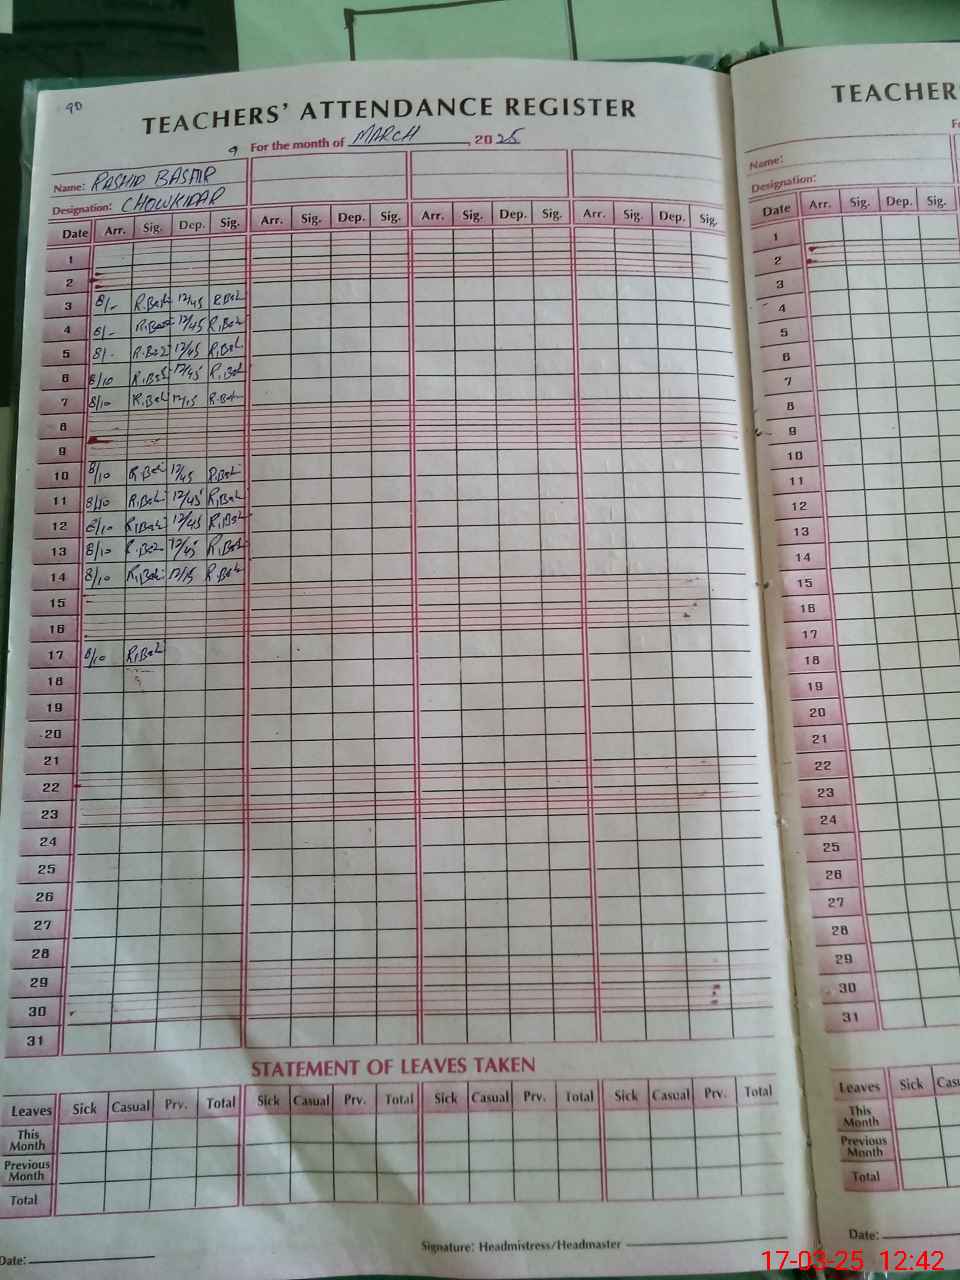 90
TEACHERS' ATTENDANCE REGISTER
9 For the month of MARCH, 2025
Name: RASHID BASHIR
Designation: CHOWKIDAR
Date Arr. Sig. Dep. Sig. Arr. Sig. Dep. Sig. Arr. Sig. Dep. Sig. Arr. Sig. Dep. Sig.
1
2
3 8/- 12/45
4 8/- 12/45
5 8/- 12/45
6 8/10 12/45
7 8/10 12/15
8
9
10 8/10 12/45
11 8/10 12/45
12 8/10 12/45
13 8/10 12/45
14 8/10 12/15
15
16
17 8/10
18
19
20
21
22
23
24
25
26
27
28
29
30
31
STATEMENT OF LEAVES TAKEN
Leaves Sick Casual Prv. Total Sick Casual Prv. Total Sick Casual Prv. Total Sick Casual Prv. Total
This
Month
Previous
Month
Total
Date:
Signature: Headmistress/Headmaster
TEACHER
Name:
Designation:
Date Arr. Sig. Dep. Sig.
1
2
3
4
5
6
7
8
9
10
11
12
13
14
15
16
17
18
19
20
21
22
23
24
25
26
27
28
29
30
31
Leaves Sick
This
Month
Previous
Month
Total
Date:
17-03-25 12:42